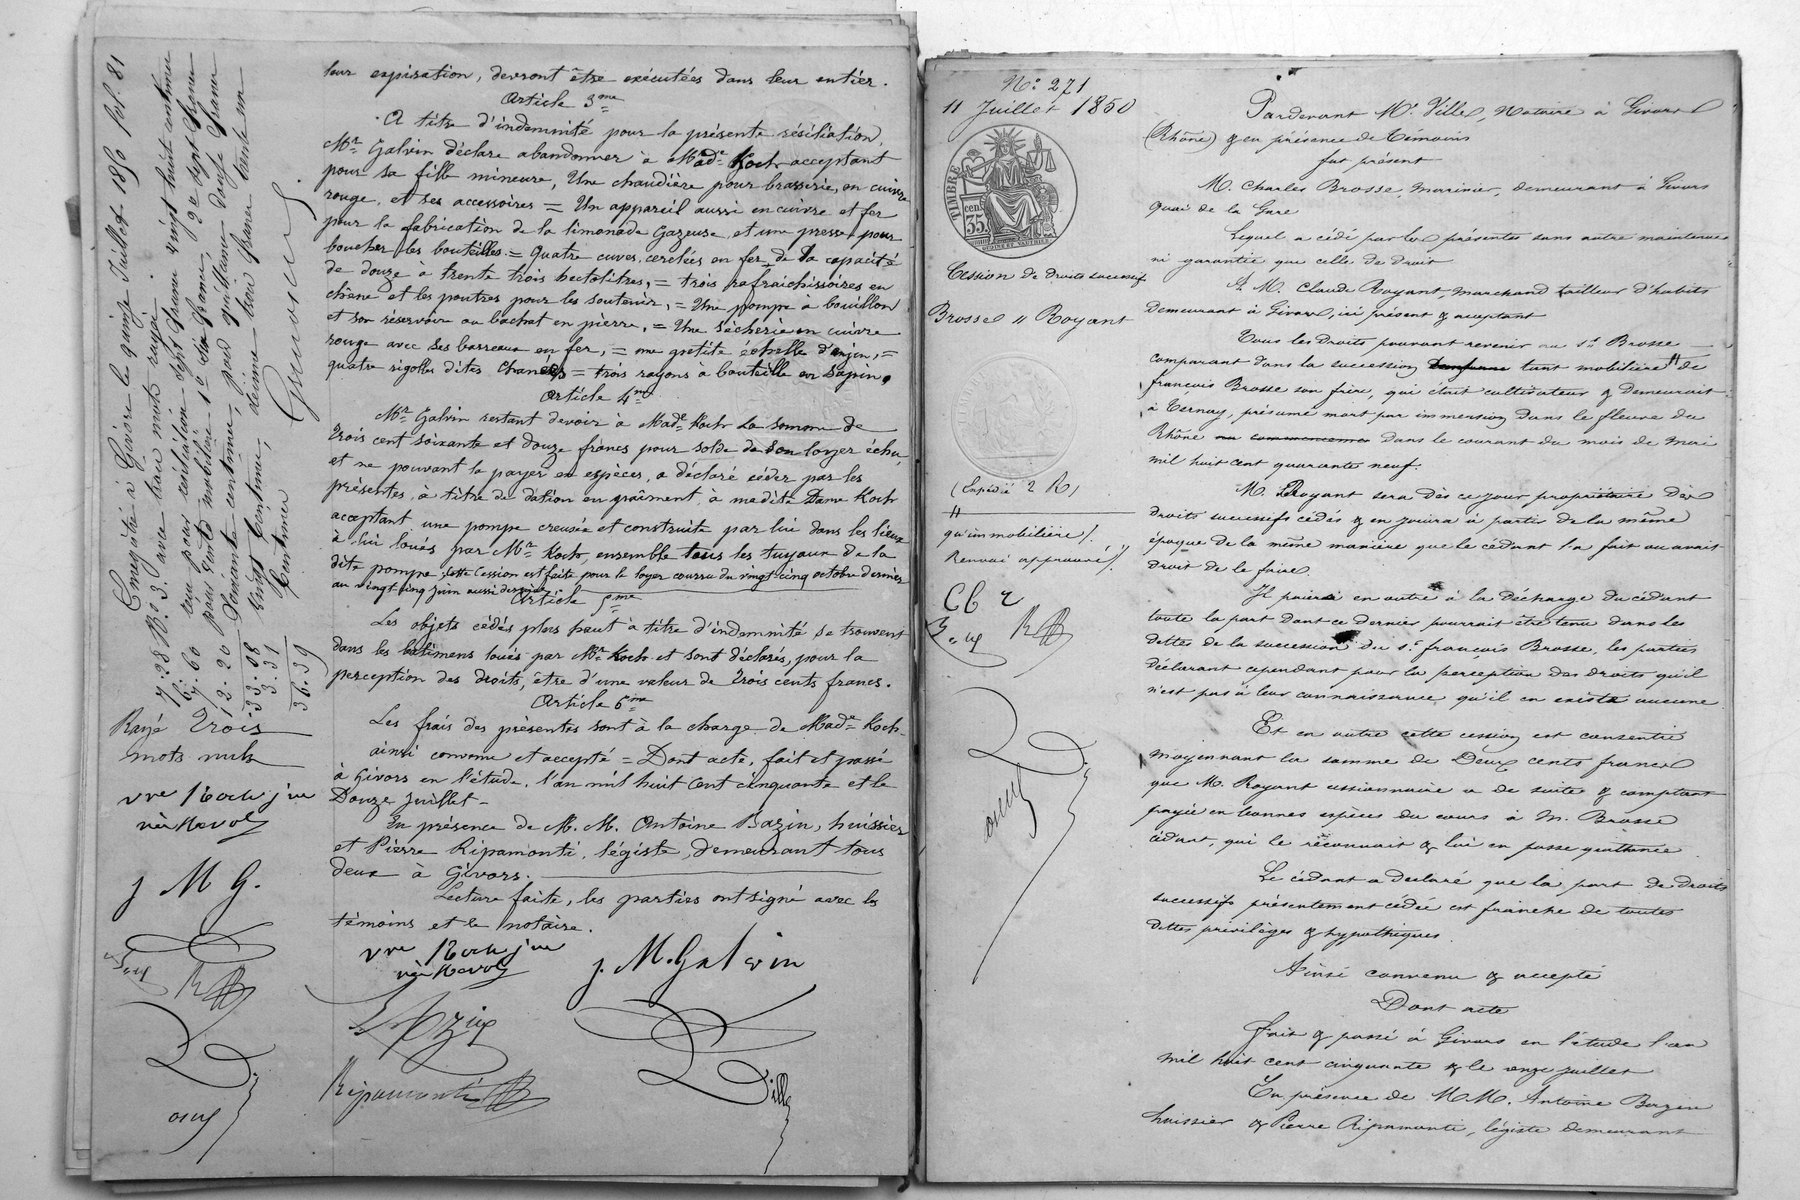 leur expiration, devront être exécutées dans leur entier.
Article 3me
A titre d'indemnité pour la présente résiliation,
Mr Galvin déclare abandonner à Made Koch acceptant
pour sa fille mineure, Une chaudière pour brasserie, en cuivre
rouge, et ses accessoires = Un appareil aussi en cuivre et fer
pour la fabrication de la limonade gazeuse, et une presse pour
boucher les bouteilles = quatre cuves, cerclées en fer, de la capacité
de douze à trente trois hectolitres, = trois rafraichissoires en
chêne et les poutres pour les soutenir, = Une pompe à bouillon
et son réservoir ou bachat en pierre, = Une sècherie en cuivre
rouge avec ses barreaux en fer, = une petite échelle =
quatre rigolles dites = trois rayons a bouteille en Sapin,
Article 4me
Mr Galvin restant devoir à Made Koch la somme de
trois cent soixante et douze francs pour solde de son loyer échu,
et ne pouvant la payer en espèces, a déclaré céder par les
présentes, à titre de dation en paîment, à madite Dame Koch
acceptant, une pompe creusée et construite par lui dans les lieux
à lui loués par Mr Koch, ensemble tous les tuyaux de la
dite pompe, cette Cession est faite pour le loyer couru du vingt cinq octobre dernier
au vingt cinq juin aussi dernier
Article 5me
Les objets cédés plus haut à titre d'indemnité se trouvent
dans les batimens loués par Mr Koch et sont déclarés, pour la
perception des droits, être d'une valeur de trois cents francs.
Article 6me
Les frais des présentes sont à la charge de Made Koch
ainsi convenu et accepté = Dont acte, fait et passé
à Givors en l'étude, l'an mil huit Cent cinquante et le
Douze juillet
En présence de M. M. Antoine Bazin, huissier
et Pierre Ripamonti, légiste, demeurant tous
deux à Givors.
Lecture faite, les parties ont signé avec les
témoins et le notaire.
vve Koch jne
née
j. M. Galvin
Bazin
Ripamonti
Ville
Enregistré à Givors le quinze Juillet 1850 fol. 81
Vo Co 3 avec trois mots rayés
7.28
6.
7.60
12.20
33.08
3.31
36.39
Rayé trois
mots nuls
vve Koch jne
née
j M G.
No 271
11 Juillet 1850
TIMBRE
cen.
35.
Cession de droits successifs
Brosse à Royant
(Expédié 2 R)
qu'immobilière/.
Renvoi approuvé/.
C b
Pardevant Me Ville, Notaire à Givors
(Rhône) & en présence de témoins
fut présent
M. Charles Brosse, marinier, demeurant à Givors
quai de la Gare
Lequel a cédé par les présentes sans autre maintenue
ni garantie que celle de Droit
A M. Claude Royant, marchand tailleur d'habits
demeurant à Givors, ici présent & acceptant
Tous les Droits pouvant revenir au sr Brosse
comparant dans la succession tant mobilière de
françois Brosse son frère, qui était cultivateur & demeurait
à Ternay, présumé mort par immersion dans le fleuve du
Rhône dans le courant du mois de mai
mil huit cent quarante neuf.
M. Royant sera dès ce jour propriétaire des
droits successifs cédés & en jouira à partir de la même
époque de la même manière que le cédant l'a fait ou avait
droit de le faire.
Il paiera en outre à la décharge du cédant
toute la part dont ce dernier pourrait être tenu dans les
dettes de la succession du sr françois Brosse, les parties
déclarant cependant pour la perception des droits qu'il
n'est pas à leur connaissance qu'il en existe aucune
Et en outre cette cession est consentie
moyennant la somme de Deux cents francs
que M. Royant cessionnaire a de suite & comptant
payée en bonnes espèces du cours à M. Brosse
cédant, qui le reconnait & lui en passe quittance
Le cédant a déclaré que la part de droits
successifs présentement cédée est franche de toutes
dettes privilèges & hypothèques.
Ainsi convenu & accepté
Dont acte
fait & passé à Givors en l'étude l'an
mil huit cent cinquante & le onze juillet
En présence de M.M. Antoine Bazin
huissier & Pierre Ripamonti, légiste demeurant